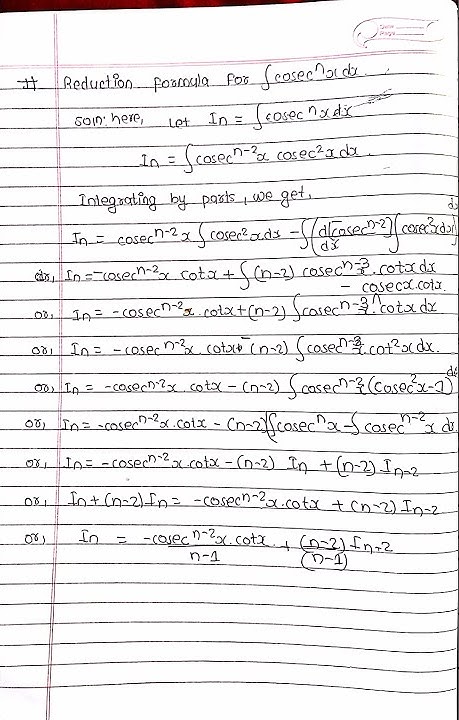 # Reduction formula for ∫cosecⁿx dx.
soln: here, Let In = ∫cosec ⁿx dx
In = ∫cosecⁿ⁻²x cosec²x dx.
Integrating by parts, we get,
In = cosecⁿ⁻²x ∫cosec²x dx - ∫(d(cosecⁿ⁻²)/dx ∫cosec²x dx) dx
or, In = -cosecⁿ⁻²x cotx + ∫(n-2) cosecⁿ⁻³x. cotx dx
- cosecx.cotx.
or, In = -cosecⁿ⁻²x.cotx + (n-2) ∫cosecⁿ⁻³x ^ cotx dx
or, In = -cosecⁿ⁻²x cotx - (n-2) ∫cosecⁿ⁻²x.cot²x dx.
or, In = -cosecⁿ⁻²x cotx - (n-2) ∫cosecⁿ⁻²x (cosec²x-1) dx
or, In = -cosecⁿ⁻²x.cotx - (n-2) ∫cosecⁿx - ∫cosecⁿ⁻²x dx
or, In = -cosecⁿ⁻²x cotx - (n-2) In + (n-2) In-2
or, In + (n-2) In = -cosecⁿ⁻²x.cotx + (n-2) In-2
or, In = -cosecⁿ⁻²x.cotx/n-1 + (n-2)/(n-1) In-2